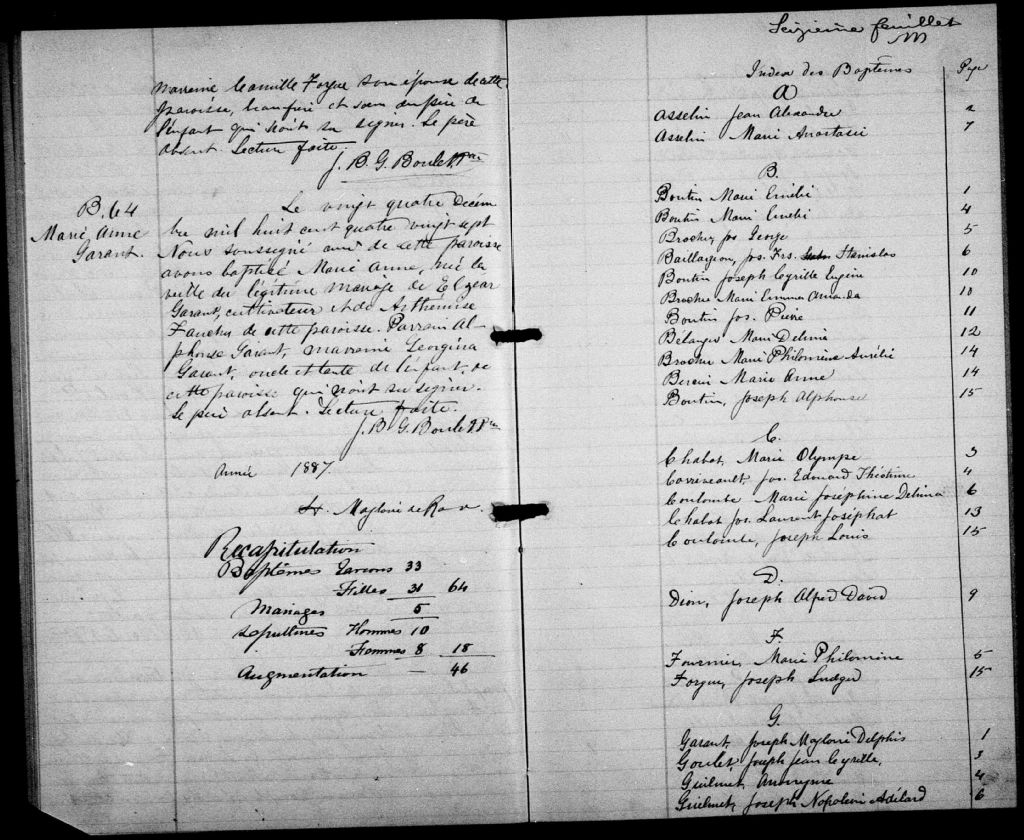 marraine Camille Forgue son épouse de cette
paroisse, beau frère et soeur du père de
l'enfant qui n'ont su signer. Le père
absent. Lecture faite.
J. B. G. Boulet Ptre
B. 64
Marie Anne
Garant.
Le vingt quatre Décem
bre mil huit cent quatre vingt sept
Nous soussigné curé de cette paroisse
avons baptisé Marie Anne, née la
veille du légitime mariage de Elzear
Garant, cultivateur et de Arthémise
Faucher de cette paroisse. Parrain Al-
phonse Garant, marraine Georgina
Garant, oncle et tante de l'enfant, de
cette paroisse qui n'ont su signer.
Le père absent. Lecture faite.
J. B. G. Boulet Ptre
Année 1887
St. Magloire de
Recapitulation
Baptêmes Garcons 33
Filles 31 64
Mariages 5
Sépultures Hommes 10
Femmes 8 18
Augmentation — 46
Seizième feuillet
Index des Baptêmes Page
A
Asselin Jean Alexandre 2
Asselin Marie Anastasie 7
B.
Boutin Marie Emélie 1
Boutin Marie 4
Brochu jos George 5
Baillargeon, jos. Frs. Stanislas 6
Boutin Joseph Cyrille Eugène 10
Brochu Marie Emma Amanda 10
Boutin Jos. Pierre 11
Bélanger Marie Delima 12
Brochu Marie Philomène Aurélie 14
Marie Anne 14
Boutin, Joseph Alphonse 15
C.
Chabot, Marie Olympe 3
jos. Edouard Théotime 4
Coulombe Marie Joséphine Delima 6
Chabot jos. Laurent Josephat 13
Coulombe, Joseph Louis 15
D.
Dion, Joseph Alfred David 9
F.
Fournier, Marie Philomène 5
Forgue, Joseph Ludger 15
G.
Garant, Joseph Magloire Delphis 1
Goulet, Joseph Jean Cyrille, 3
Guilmet, Anonyme 4
Guilmet, Joseph Napoléon Adélard 6